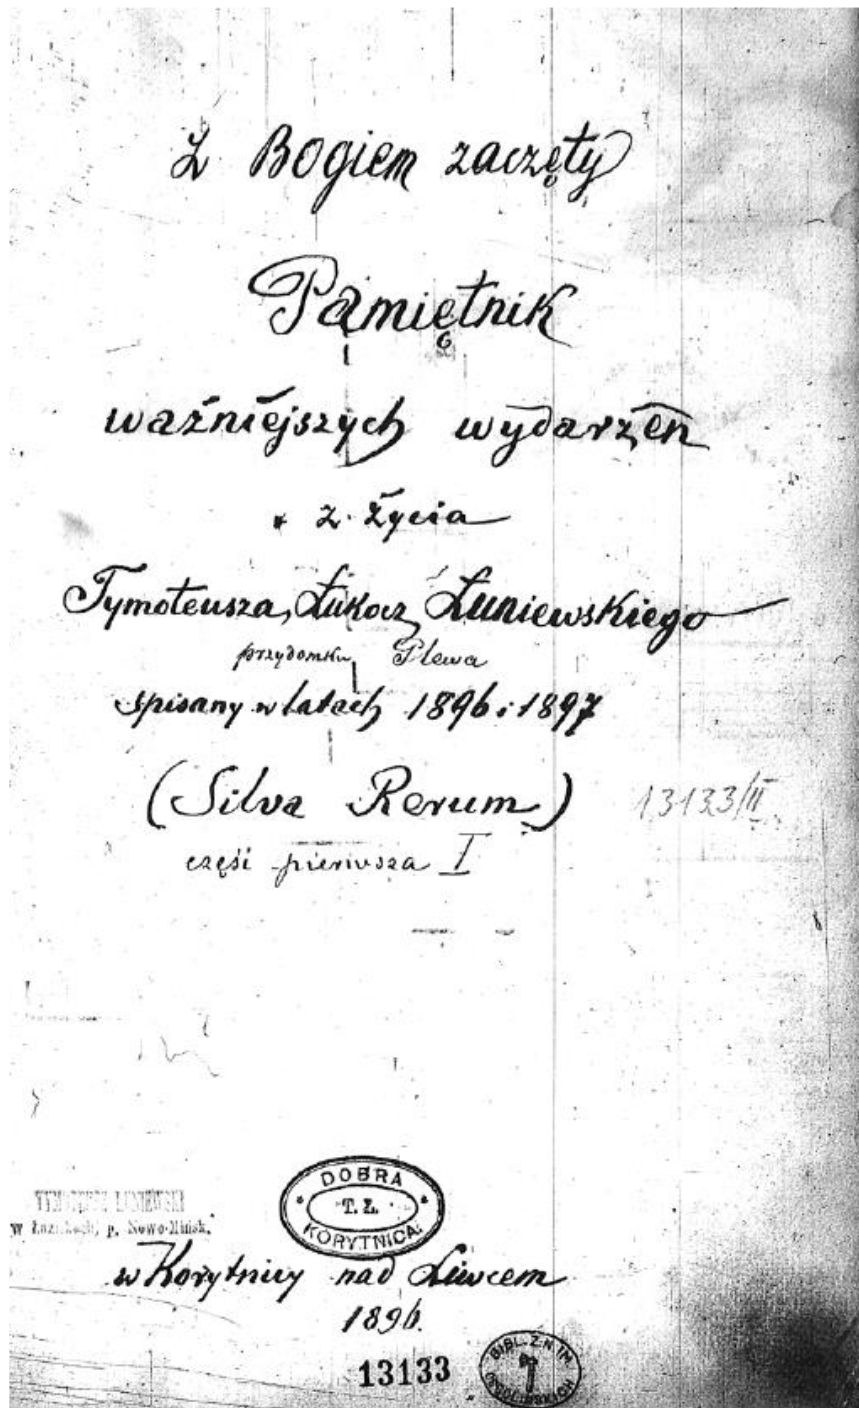 Z Bogiem zaczęty
Pamiętnik
ważniejszych wydarzeń
z życia
Tymoteusza, Łukasz, Łuniewskiego
przydomku Plewa
spisany w latach 1896 i 1897
(Silva Rerum)
13133/II
część pierwsza I
DOBRA
T. Ł.
KORYTNICA
TYMOTEUSZ ŁUNIEWSKI
w p. Nowo-Mińsk.
w Korytnicy nad Liwcem
1896.
13133
BIBL. Z. N. IM.
OSSOLIŃSKICH